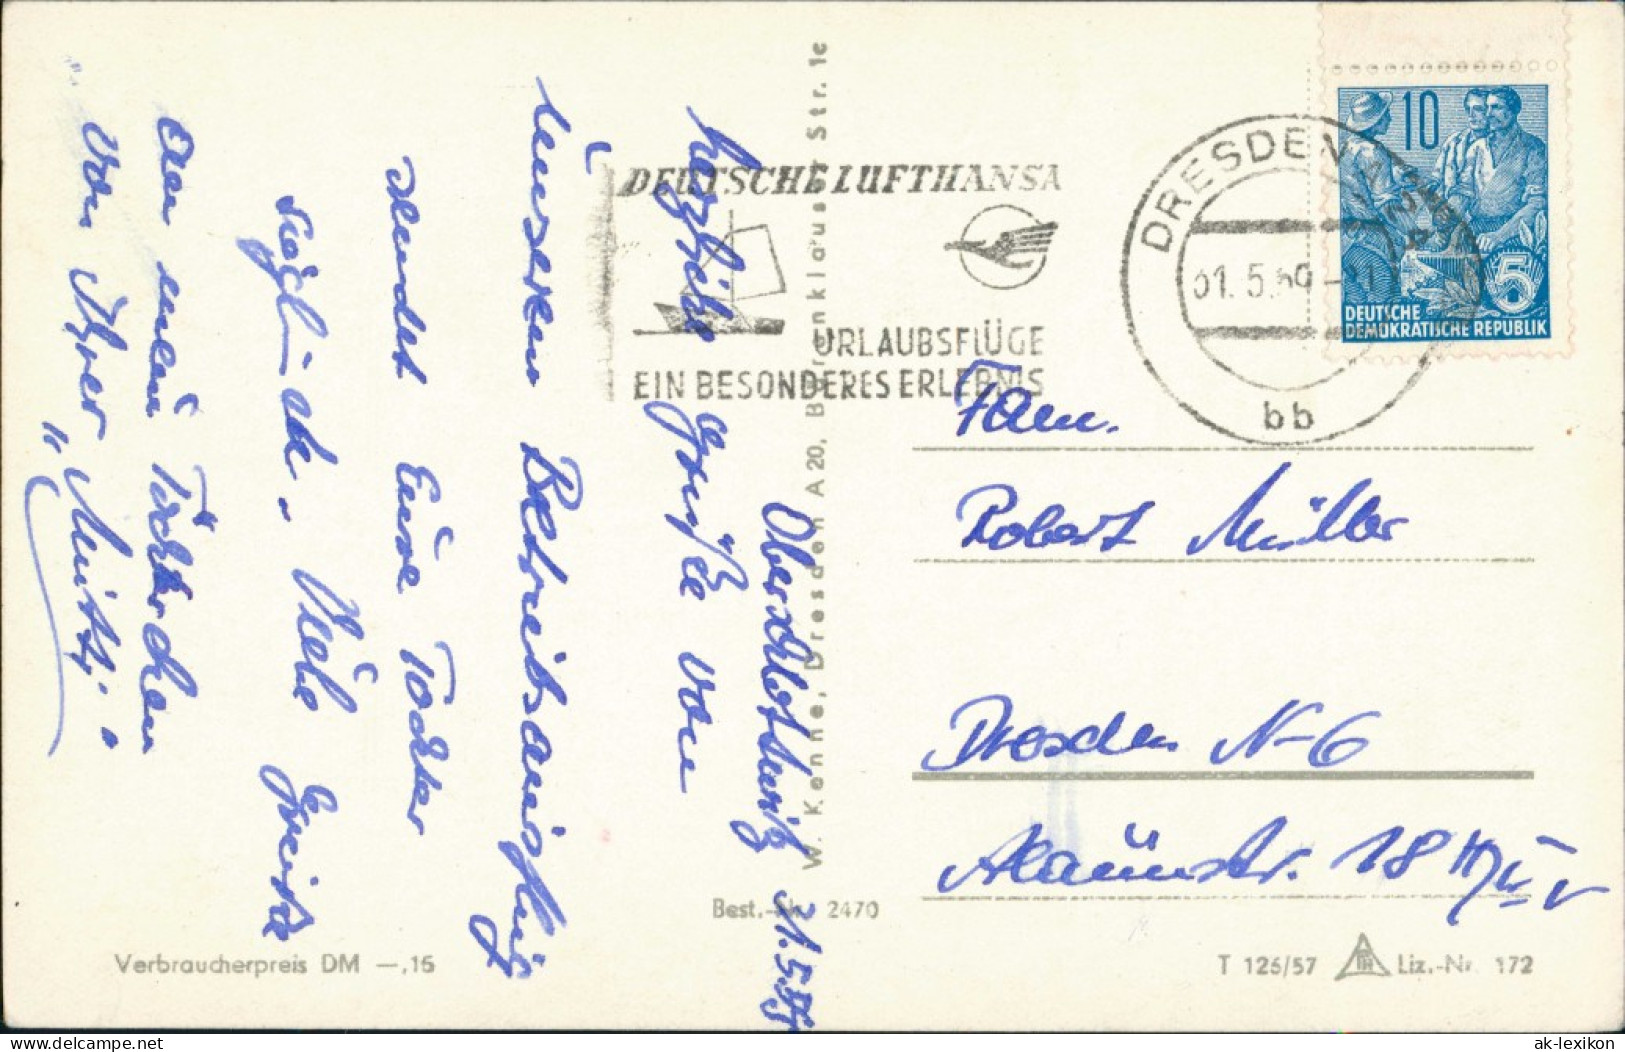 Oberschlottwitz 31.5.59
herzliche Grüße von
unserem Betriebsausflug
sendet Eure Tochter
Sieglinde. Viele Grüße
an euren Töchterchen
von Ihrer
"Mutti"
DEUTSCHE LUFTHANSA
URLAUBSFLÜGE
EIN BESONDERES ERLEBNIS
DRESDEN
31.5.59
bb
10
5
DEUTSCHE
DEMOKRATISCHE REPUBLIK
W. Kenne, Dresden A 20, Bärenklauser Str. 1c
Fam.
Robert Müller
Dresden N-6
Alaunstr. 18
Best.-Nr. 2470
Verbraucherpreis DM —,15
T 126/57 Liz.-Nr. 172
ak-lexikon.com
ak-lexikon